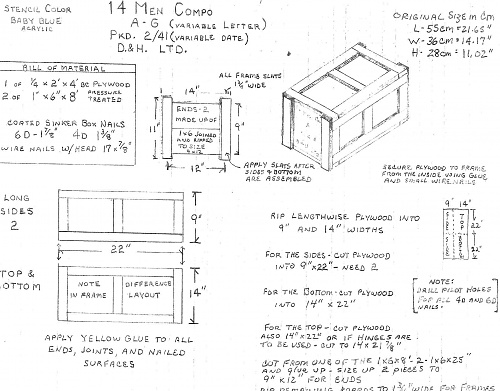 STENCIL COLOR
BABY BLUE
ACRYLIC
14 MEN COMPO
A-G (VARIABLE LETTER)
PKD. 2/41 (VARIABLE DATE)
D.&H. LTD.
ORIGINAL SIZE in Cm
L-55cm=21.65"
W-36cm=14.17"
H-28cm=11.02"
BILL OF MATERIAL
1 OF 1/4 x 2' x 4' BC PLYWOOD
2 OF 1" x 6" x 8' PRESSURE TREATED
COATED SINKER BOX NAILS
6D-1 7/8" 4D 1 3/8"
WIRE NAILS W/HEAD 17x7/8"
ALL FRAME SLATS
1 3/4" WIDE
14"
11"
ENDS-2
MADE UP OF
1x6 JOINED
AND RIPPED
TO SIZE
9x12
9"
12"
APPLY SLATS AFTER
SIDES & BOTTOM
ARE ASSEMBLED
SECURE PLYWOOD TO FRAME
FROM THE INSIDE USING GLUE
AND SMALL WIRE NAILS
LONG
SIDES
2
9"
22"
TOP &
BOTTOM
NOTE
IN FRAME
DIFFERENCE
LAYOUT
14"
APPLY YELLOW GLUE TO ALL
ENDS, JOINTS, AND NAILED
SURFACES
RIP LENGTHWISE PLYWOOD INTO
9" AND 14" WIDTHS
9" 14"
22"
22"
FOR THE SIDES-CUT PLYWOOD
INTO 9"x22"-NEED 2
FOR THE BOTTOM-CUT PLYWOOD
INTO 14" x 22"
NOTE:
DRILL PILOT HOLES
FOR ALL 4D AND 6D
NAILS.
FOR THE TOP-CUT PLYWOOD
ALSO 14"x22" OR IF HINGES ARE
TO BE USED-CUT TO 14x21 7/8"
CUT FROM ONE OF THE 1x6x8'-2-1x6x25"
AND GLUE UP-SIZE UP 2 PIECES TO
9" x 12" FOR ENDS
RIP REMAINING BOARDS TO 1 3/4" WIDE FOR FRAMES